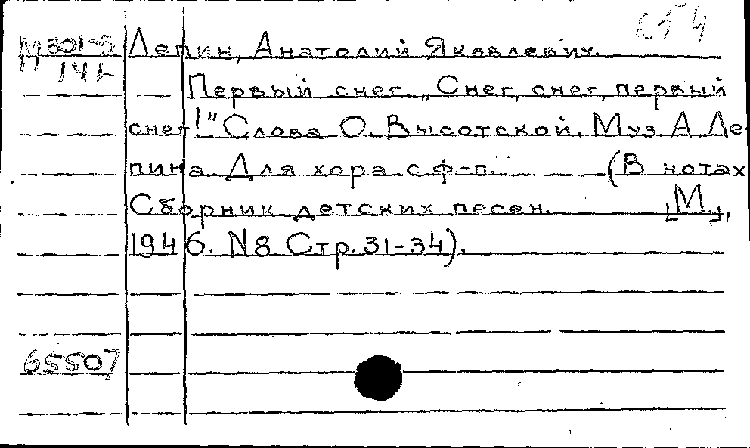 М 301-5 Лепин, Анатолий Яковлевич.
141
Первый снег. „Снег, снег, первый
снег!" Слова О. Высотской. Муз. А. Ле-
пина. Для хора с ф-п. (В нотах
Сборник детских песен. [М.],
1946. N8. Стр. 31-34).
65507